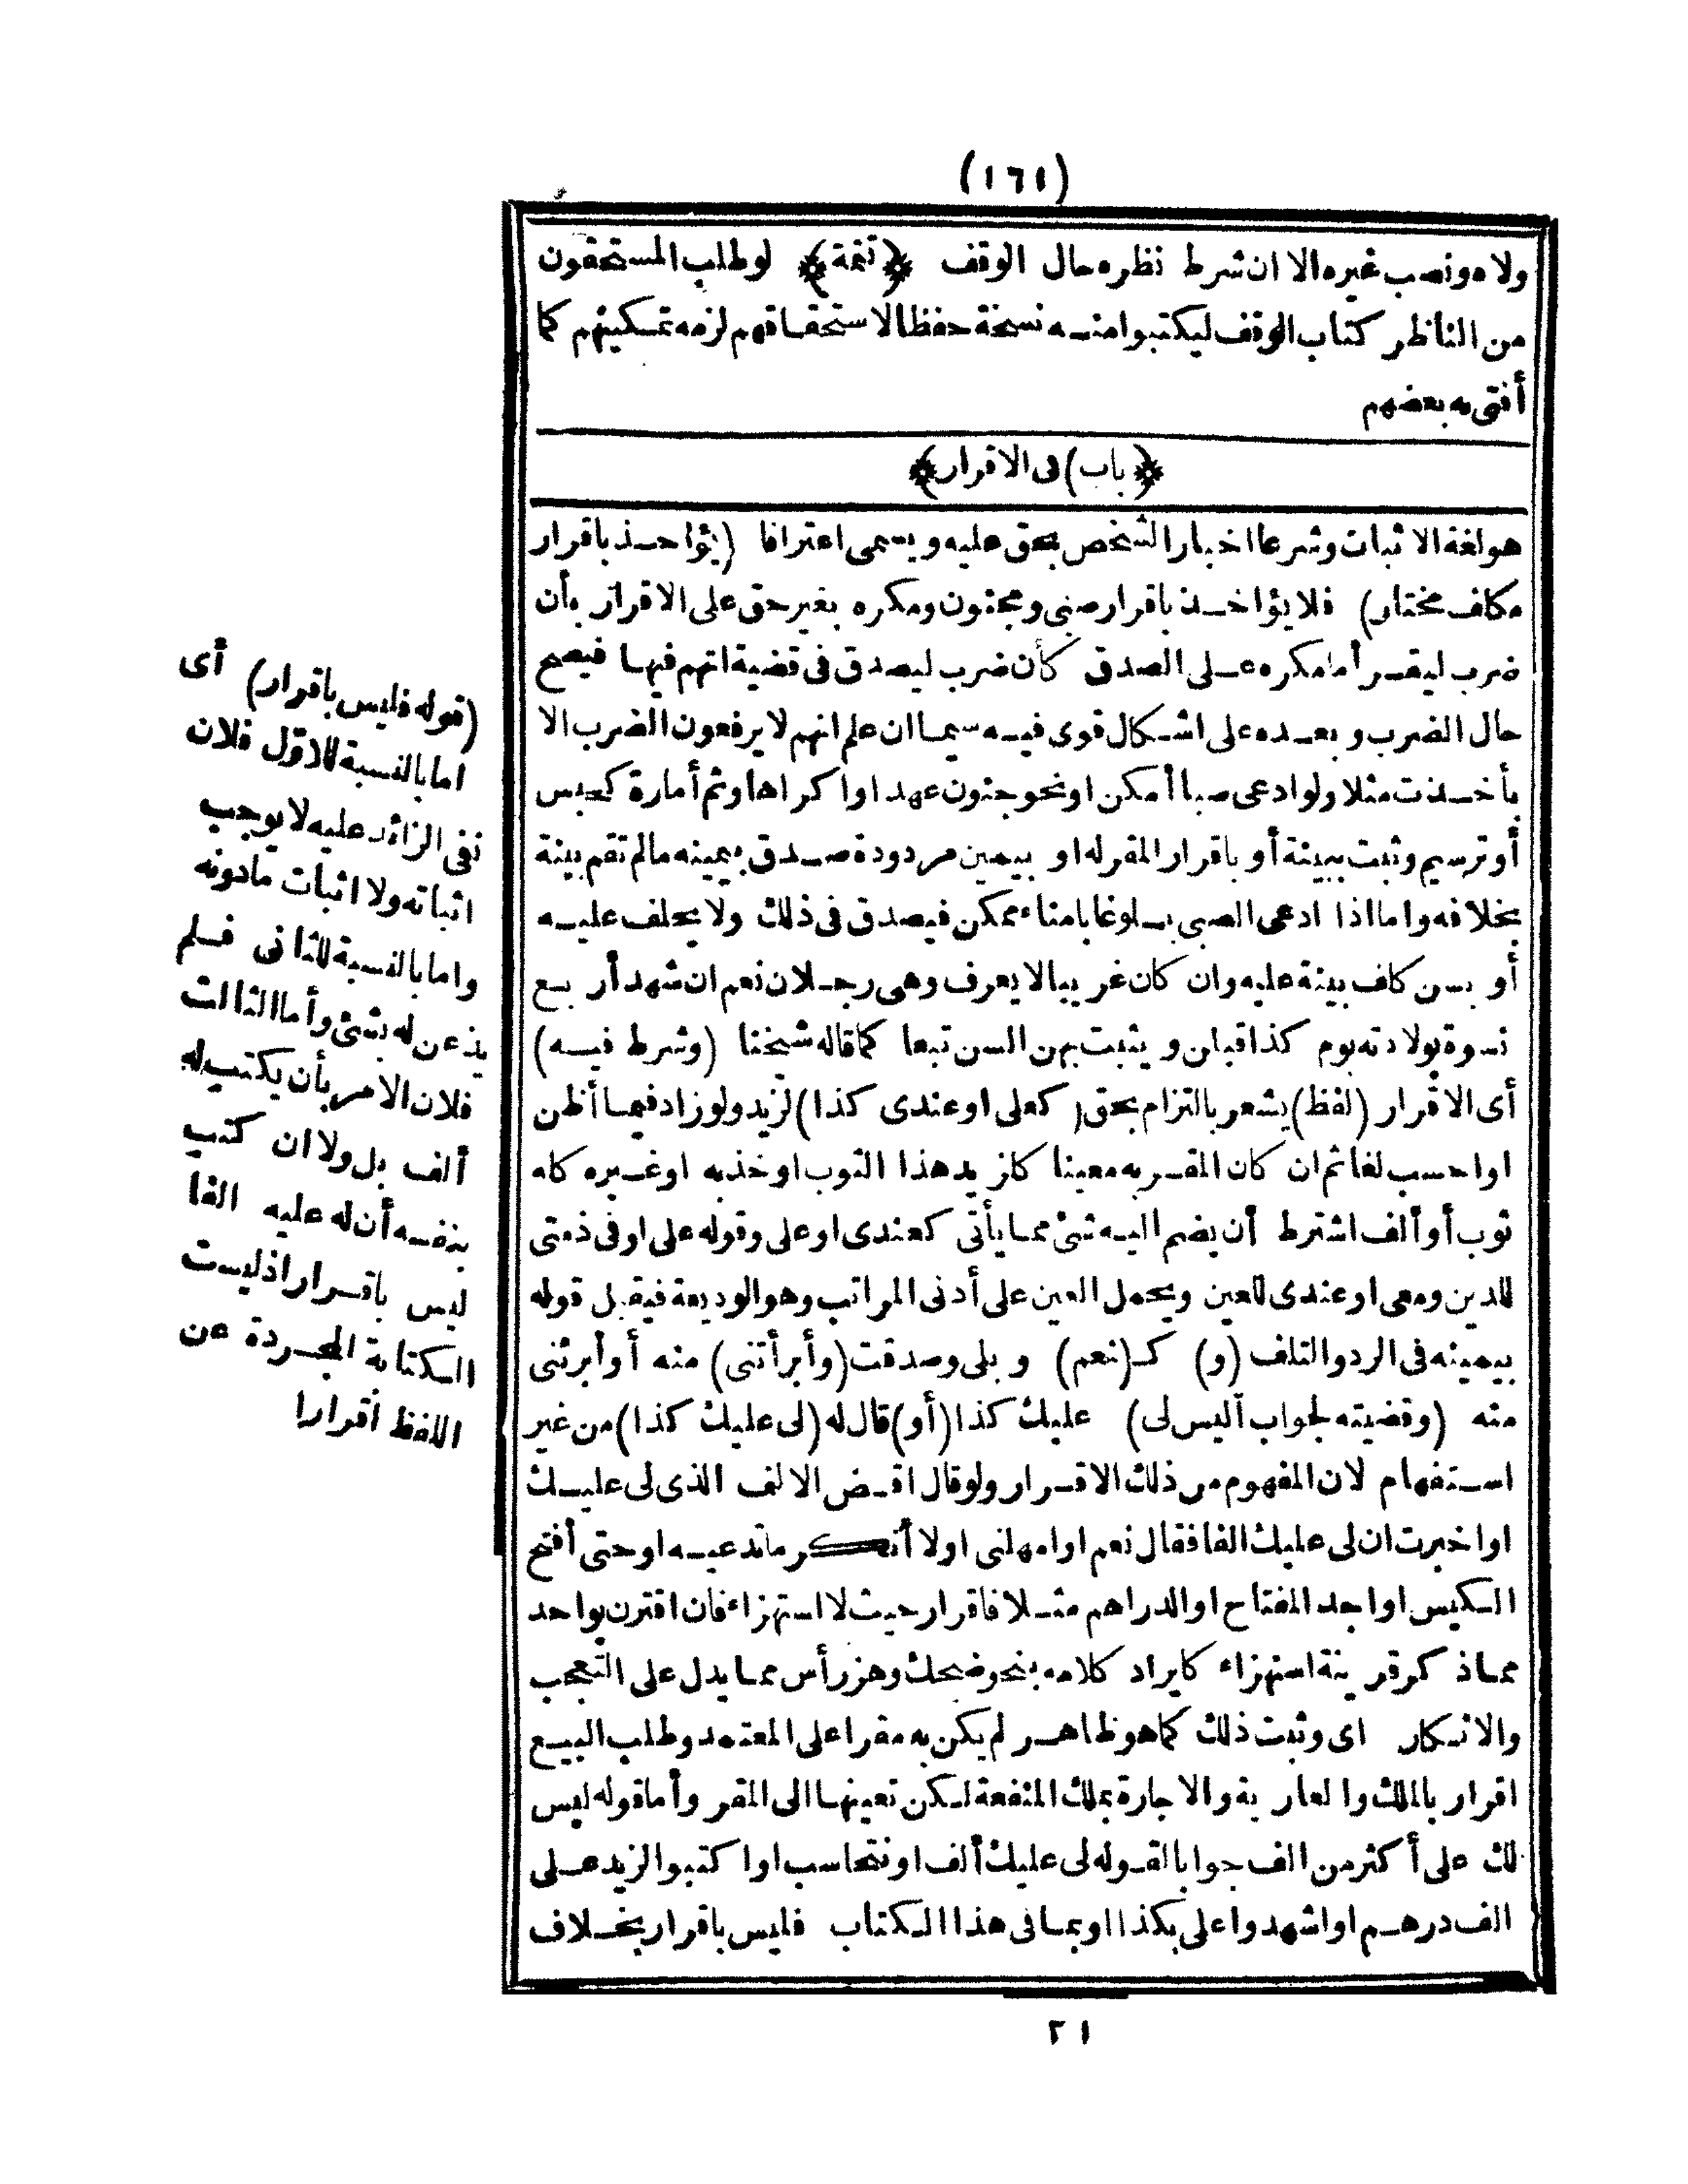 (١٦١)
ولاه ونصب غيره الا ان شرط نظره حال الوقف ﴿تتمة﴾ لو طلب المستحقون
من الناظر كتاب الوقف ليكتبوا منه نسخة حفظا لاستحقاقهم لزمه تمكينهم كما
أفتى به بعضهم
﴿باب) فى الاقرار﴾
هو لغة الاثبات وشرعا اخبار الشخص بحق عليه ويسمى اعترافا (يؤاخذ باقرار
مكلف مختار) فلا يؤاخذ باقرار صبى ومجنون ومكره بغير حق على الاقرار بأن
ضرب ليقر أما مكره على الصدق كأن ضرب ليصدق فى قضية اتهم فيها فيصح
حال الضرب وبعده على اشكال قوى فيه سيما ان علم انهم لا يرفعون الضرب الا
بأخذت مثلا ولو ادعى صبا أمكن او نحو جنون عهد او اكراها وثم أمارة كحبس
أو ترسيم وثبت ببينة أو باقرار المقر له او بيمين مردودة صدق بيمينه مالم تقم بينة
بخلافه واما اذا ادعى الصبى بلوغا بامناء ممكن فيصدق فى ذلك ولا يحلف عليه
أو بسن كلف بينة عليه وان كان غريبا لا يعرف وهى رجلان نعم ان شهد أربع
نسوة بولادته يوم كذا قبلن ويثبت بهن السن تبعا كما قاله شيخنا (وشرط فيه)
أى الاقرار (لفظ) يشعر بالتزام بحق (كعلى او عندى كذا) لزيد ولو زاد فيما أظن
او احسب لغا ثم ان كان المقر به معينا كلزيد هذا الثوب او خذ به او غيره كله
ثوب أو ألف اشترط أن يضم اليه شئ مما يأتى كعندى او على وقوله على او فى ذمتى
للدين ومعى او عندى للعين ويحمل العين على أدنى المراتب وهو الوديعة فيقبل قوله
بيمينه فى الرد والتلف (و) كـ(نعم) وبلى وصدقت (وأبرأتنى) منه أو أبرئنى
منه (وقضيته لجواب أليس لى) عليك كذا (أو) قال له (لى عليك كذا) من غير
استفهام لان المفهوم من ذلك الاقرار ولو قال اقض الالف الذى لى عليك
او اخبرت ان لى عليك الفا فقال نعم او امهلنى او لا أنكر ما تدعيه او حتى أفتح
الكيس او اجد المفتاح او الدراهم مثلا فاقرار حيث لا استهزاء فان اقترن بواحد
مما ذكر قرينة استهزاء كايراد كلامه بنحو ضحك وهز رأس مما يدل على التعجب
والانكار اى وثبت ذلك كما هو ظاهر لم يكن به مقرا على المعتمد وطلب البيع
اقرار بالملك والعارية والاجارة بملك المنفعة لكن تعينها الى المقر وأما قوله ليس
لك على أكثر من الف جوابا لقوله لى عليك ألف او نتحاسب او اكتبوا لزيد على
الف درهم او اشهدوا على بكذا او بما فى هذا الكتاب فليس باقرار بخلاف
٢١
(قوله فليس باقرار) أى
اما بالنسبة للاول فلان
نفى الزائد عليه لا يوجب
اثباته ولا اثبات مادونه
واما بالنسبة للثانى فلم
يذعن له بشئ وأما الثالث
فلان الامر بأن يكتب له
ألف بل ولا ان كتب
بنفسه أن له عليه الفا
ليس باقرار اذ ليست
الكتابة المجردة عن
اللفظ أقرارا